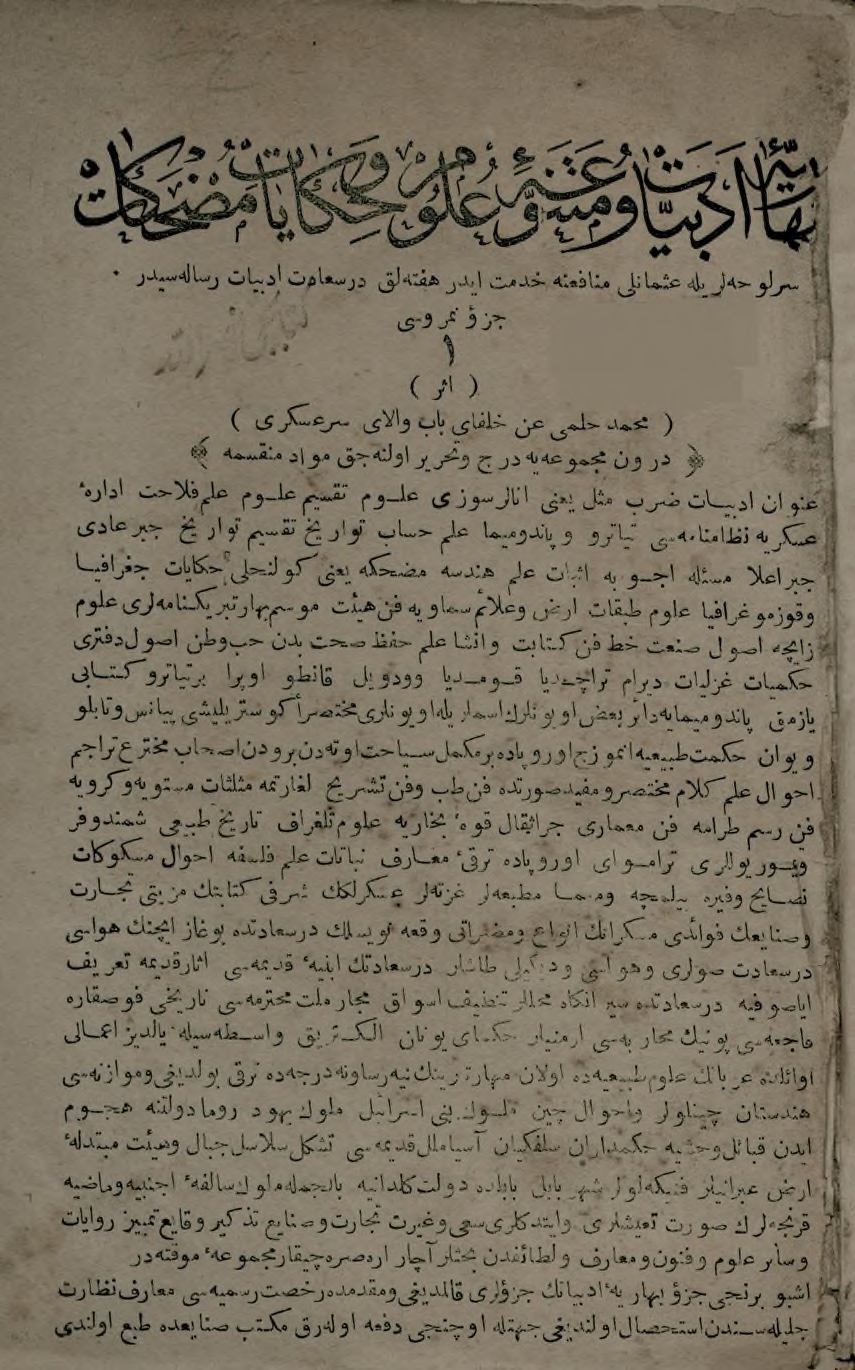 بهاريۀ ادبيات ومنتوعۀ علوم وحكايات مضحكات
سرلوحه‌لريله عثمانلى منافعنه خدمت ايدر هفته‌لق درسعادت ادبيات رساله‌سيدر
جزؤ نمروسى
١
( اثر )
( محمد حلمى عن خلفاى باب والاى سرعسكرى )
﴿ درون مجموعه‌يه درج وتحرير اولنه‌جق مواد منقسمه ﴾
عنوان ادبيات ضرب مثل يعنى اتالرسوزى علوم تقسيم علوم علم فلاحت ادارۀ
عسكريه نظامنامه‌سى تياترو وپاندوميما علم حساب تواريخ تقسيم تواريخ جبر عادى
جبر اعلا مسئله اجوبه اثبات علم هندسه مضحكه يعنى كولنجلى حكايات جغرافيا
وقوزموغرافيا علوم طبقات ارض وعلائم سماويه فن هيئت موسم بهار تبريكنامه‌لرى علوم
زايچه اصول صنعت خط فن كتابت وانشا علم حفظ صحت بدن حب وطن اصول دفترى
حكميات غزليات ديرام تراچه‌ديا قومديا وودويل قانطو اوپرا برتياترو كتابى
يازمق پاندوميمايه دائر بعض اويونلرك اسماريله اويونلرى مختصراً كوستريليشى پيانس وتابلو
ويوان حكمت طبيعيه انموزج اوروپاده برمكمل سياحت اوته‌دن برودن اصحاب مخترع تراجم
احوال علم كلام مختصر ومفيد صورتده فن طب وفن تشريح لغارتمه مثلثات مستويه وكرويه
فن رسم طرامه فن معمارى جراثقال قوۀ بخاريه علوم تلغراف تاريخ طبيعى شمندوفر
وپوريوللرى تراموای اوروپاده ترقئ معارف نباتات علم فلسفه احوال مسكوكات
نصايح وفيره بيلمجه ومعما مطبعه‌لر غزته‌لر عسكرلكك شرفى كتابتك مزيتى تجارت
وصنايعك فوائدى مسكراتك انواع ومضراتى وقعه نويسلك درسعادتده بوغاز ايچنك هواسى
درسعادت صولرى وهواسى وديكيلى طاشلر درسعادتك ابنيۀ قديمه‌سى اثار قديمه تعريف
اياصوفيه درسعادتده سير انكاه محللر تنظيف اسواق مجار ملت محترمه‌سى تاريخى قوصقاره
فاجعه‌سى پونيك محاربه‌سى ارمنيلر حكماى يونان الكتريق واسطه‌سيله يالديز اعمالى
اوائلده عربلرك علوم طبيعيه‌ده اولان مهارتلرينك نيه رساونه درجه‌ده ترقى بولديغى وموازنه‌سى
هندستان چينلولر واحوال چين ملوك بنى اسرائيل ملوك يهود روما دولتنه هجوم
ايدن قبائل وحشيه حكمداران سلفكيان آسيا ملل قديمه‌سى تشكل سلاسل جبال وهيئت مبتدلۀ
ارض عبرانيلر فنيكه‌لولر شهر بابل بابلده دولت كلدانيه بالجمله ملوك سالفۀ اجنبيه وماضيه
قرنجه‌لرك صورت تعيشلرى وايتدكلرى سعى وغيرت تجارت وصنايع تذكير وقايع تمييز روايات
وسائر علوم وفنون ومعارف ولطائفدن بحثلر آچار اره‌صره چيقار مجموعۀ موقته‌در
اشبو برنجى جزؤ بهاريۀ ادبياتك جزؤلرى قالمديغى ومقدمده رخصت رسميه‌سى معارف نظارت
جليله‌سندن استحصال اولنديغى جهتله اوچنجى دفعه اوله‌رق مكتب صنايعده طبع اولندى